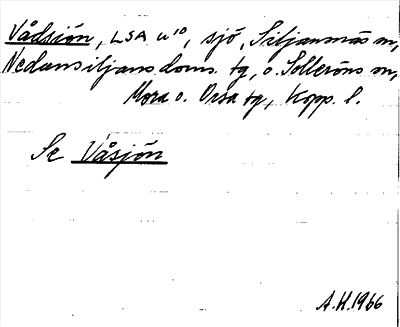 Vådsjön, LSA u¹⁰, sjö, Siljansnäs sn,
Nedansiljans doms. tg, o. Solleröns sn,
Mora o. Orsa tg, Kopp. l.
Se Våsjön
A.H. 1966